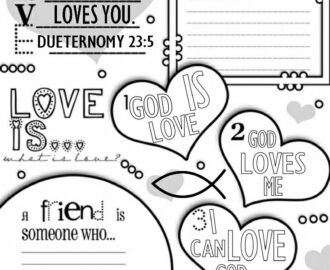 V LOVES YOU.
E DUETERNOMY 23:5
LOVE
IS...
what is love?
1 GOD IS
LOVE
2 GOD
LOVES
ME
A friend is
SOMEONE WHO...
3 I
CAN LOVE
GOD